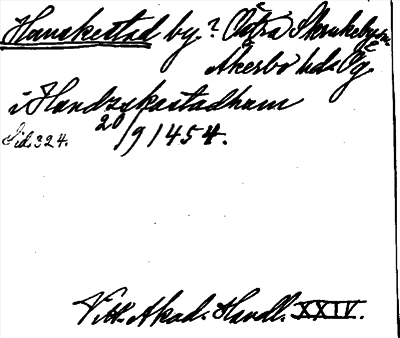 Hanskestad by? Östra Skrukeby sn
Åkerbo hd. Ög.
i Handzskastadhum
20/9 1454.
Sid. 324.
Vitt. Akad. Handl. XXIV.